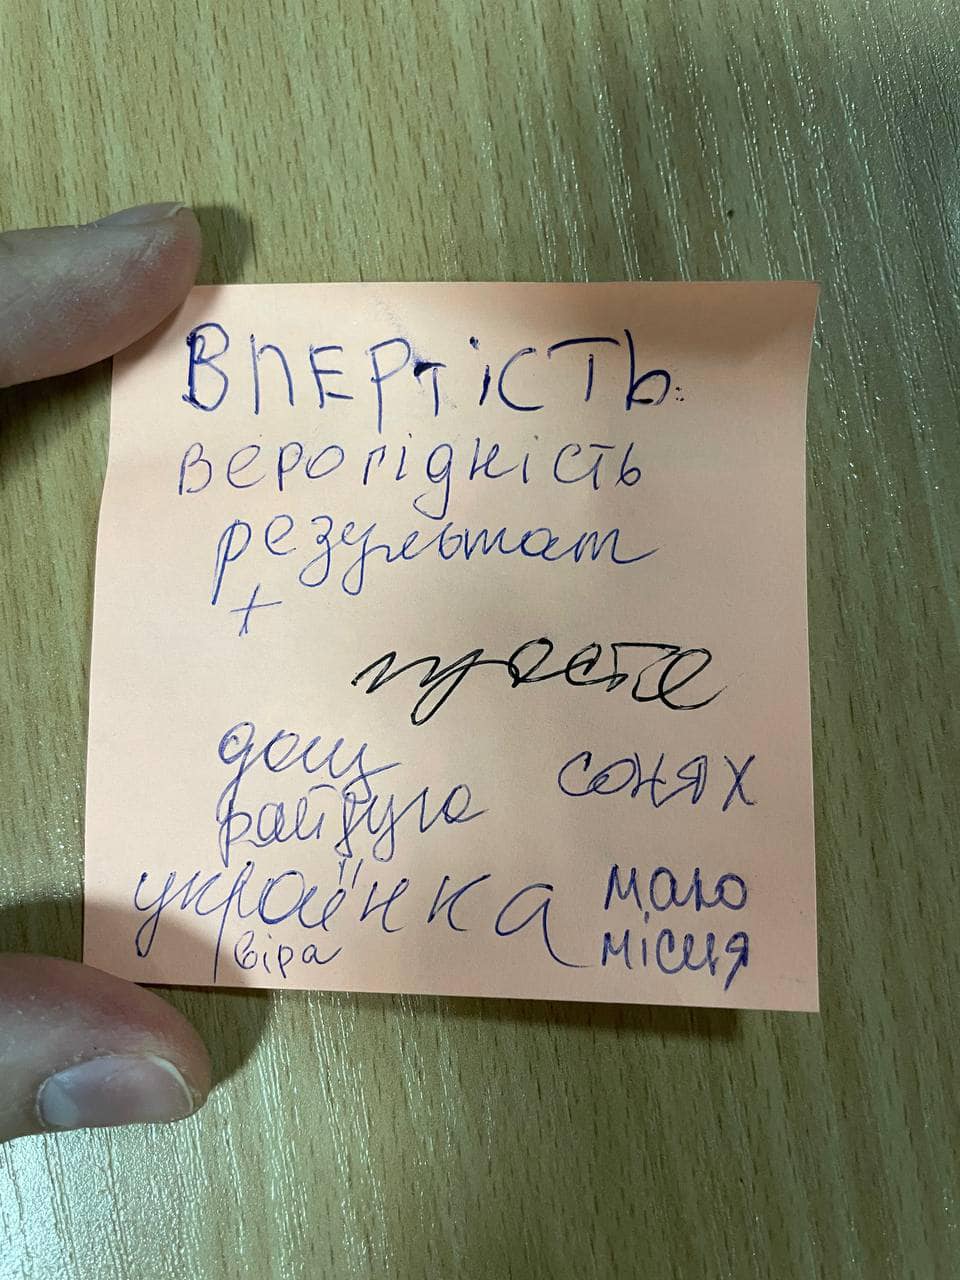 ВПЕРТІСТЬ
верогідність
результат
+
просто
дощ
сонях
райдуга
українка
мало
місця
віра